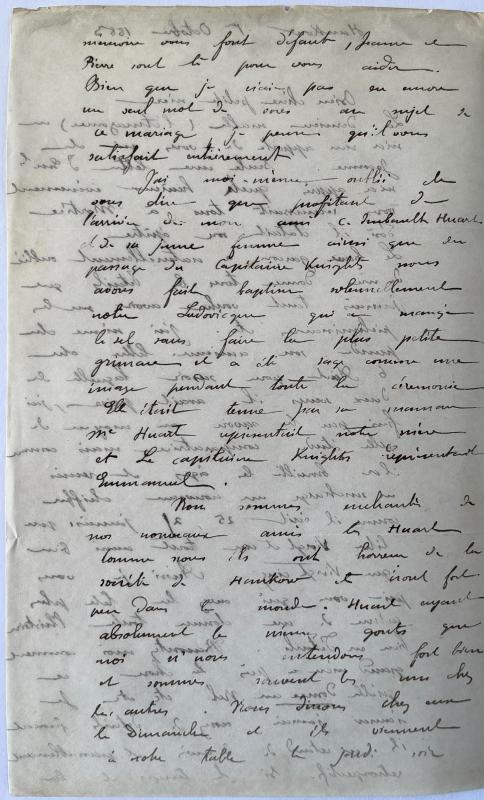 mémoire vous font défaut, Jeanne et
Pierre sont là pour vous aider.
Bien que je n'aie pas eu encore
un seul mot de vous au sujet de
ce mariage je pense qu'il vous
satisfait entièrement.
J'ai moi-même oublié de
vous dire que profitant de
l'arrivée de mon ami C. Imbault Huart
et de sa jeune femme ainsi que du
passage du Capitaine Knights nous
avons fait baptiser solennellement
notre Ludovicque qui a mangé
le sel sans faire la plus petite
grimace et a été sage comme une
image pendant toute la cérémonie
Elle était tenue par sa maman
Me Huart représentait notre mère
et Le capitaine Knights représentait
Emmanuel.
Nous sommes enchantés de
nos nouveaux amis les Huart
comme nous ils ont horreur de la
société de Hankow et iront fort
peu dans le monde. Huart ayant
absolument le même goûts que
moi nous nous entendons fort bien
et sommes souvent les uns chez
les autres. Nous dînons chez eux
le Dimanche et ils viennent
à notre table le jeudi soir